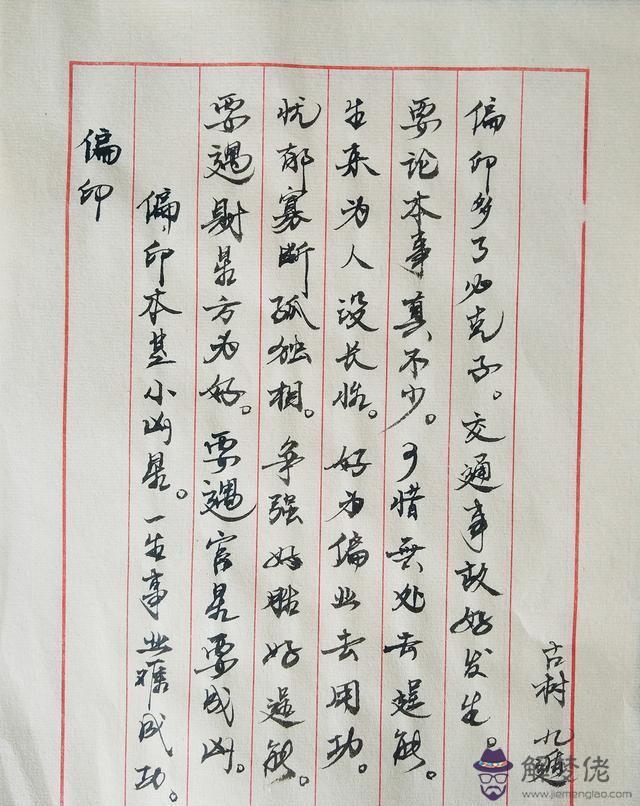 偏印
偏印本是小凶星。一生事业难成功。
要遇财星方为好。要遇官星要成凶。
忧郁寡断孤独相。争强好胜好逞能。
生来为人没长。好为偏业去用功。
要论本事真不少。可惜無处去逞能。
偏印多了必克子。交通事故好发生。
古树
解梦佬
www.jiemenglao.com